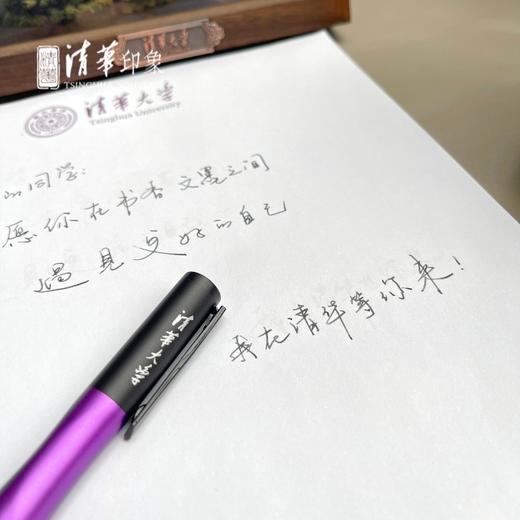 清華印象
TSINGHUA
清華大学
清華大学
Tsinghua University
的同学:
愿你在书香文墨之间
遇见更好的自己
我在清华等你来!
清華大学